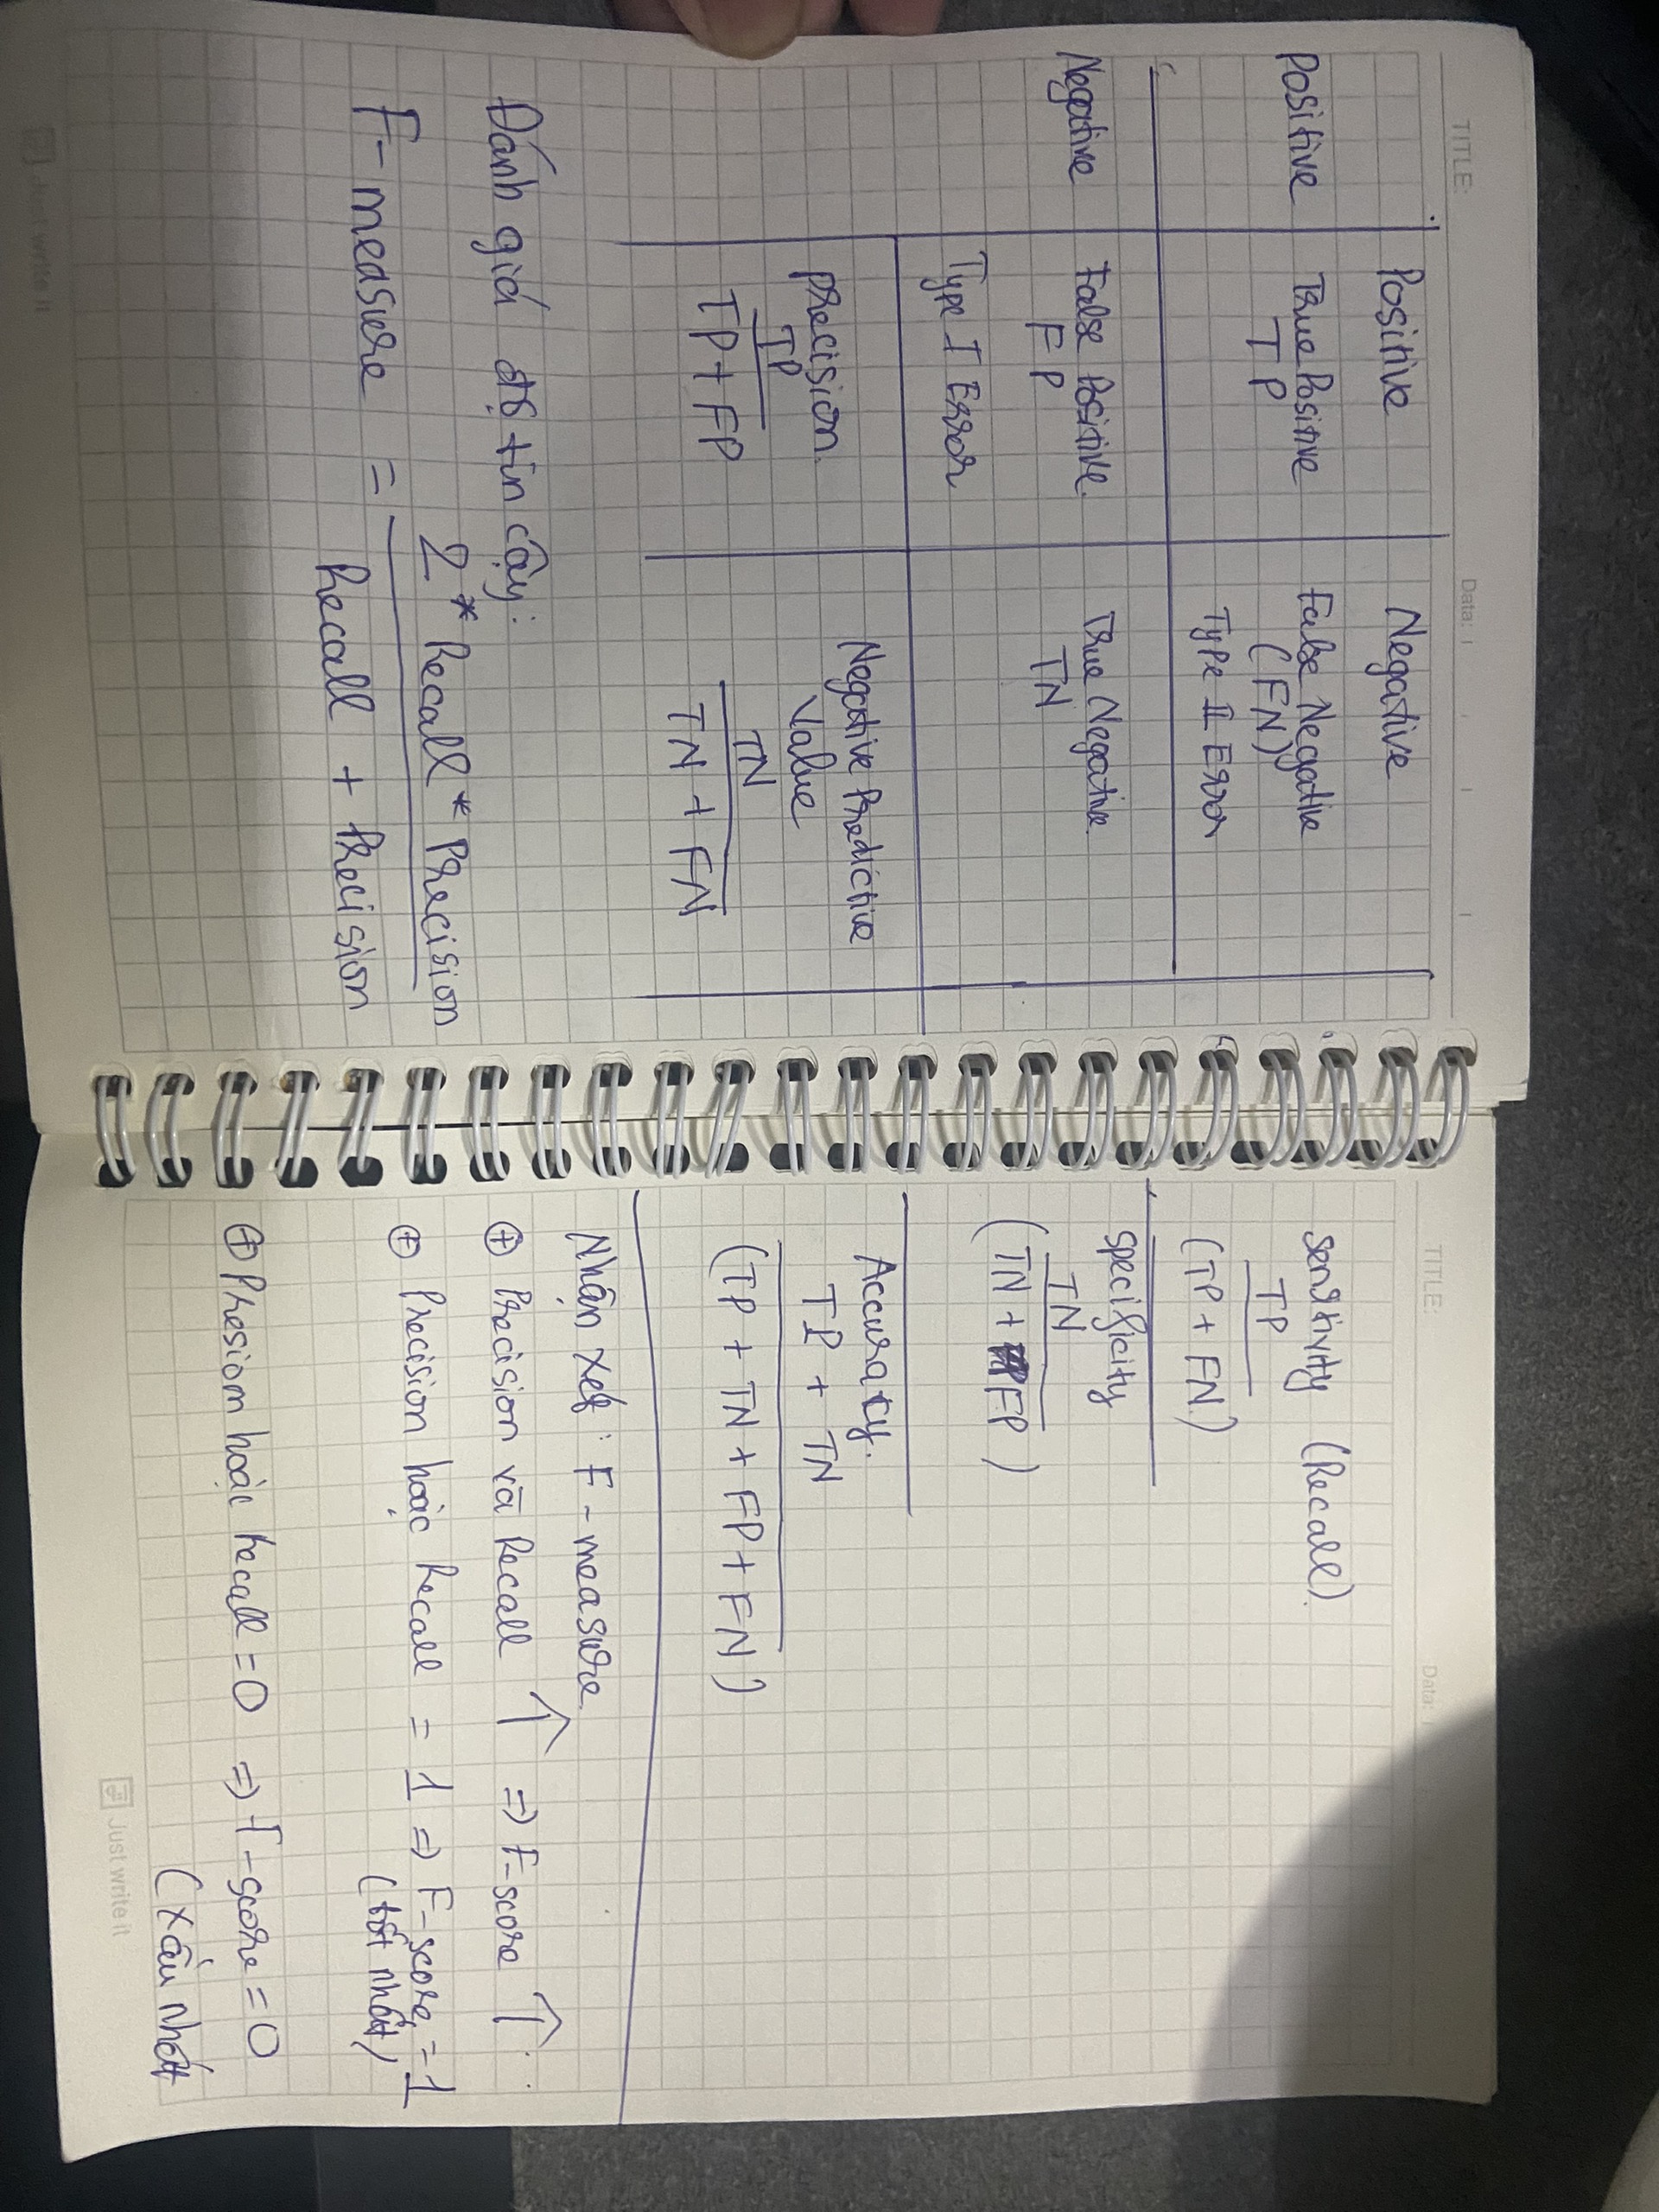 TITLE:
Data:
Positive Negative
Positive True Positive False Negative
TP (FN)
Type II Error
Negative False Positive. True Negative.
FP TN
Type I Error
precision. Negative Predictive
Value
TP
TP + FP
TN
TN + FN
Đánh giá độ tin cậy:
F-measure = 2 * Recall * Precision
Recall + Precision
Just write it
TITLE:
Data:
Sensitivity (Recall).
TP
(TP + FN)
Specificity
TN
(TN + FP)
Accuracy.
TP + TN
(TP + TN + FP + FN)
Nhận xét: F-measure
⊕ Precision và Recall ↑ => F-score ↑
⊕ Precision hoặc Recall = 1 => F-score = 1
(tốt nhất)
⊕ Presiom hoặc Recall = 0 => F-score = 0
(xấu nhất
Just write it